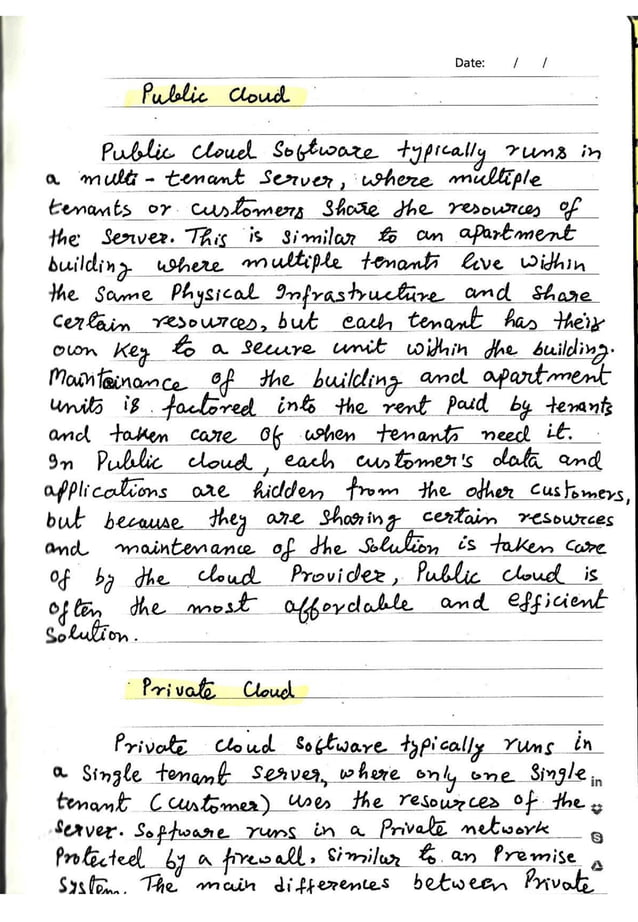 Date: / /
Public Cloud
Public Cloud Software typically runs in
a multi-tenant server, where multiple
tenants or customers share the resources of
the server. This is similar to an apartment
building where multiple tenants live within
the same Physical Infrastructure and share
certain resources, but each tenant has their
own key to a secure unit within the building.
Maintainance of the building and apartment
units is factored into the rent paid by tenants
and taken care of when tenants need it.
In Public cloud, each customer's data and
applications are hidden from the other customers,
but because they are sharing certain resources
and maintenance of the solution is taken care
of by the cloud Provider, Public cloud is
often the most affordable and efficient
Solution.
Private Cloud
Private cloud software typically runs in
a Single tenant server, where only one Single
tenant (customer) uses the resources of the
server. Software runs in a Private network
Protected by a firewall, similar to an Premise
System. The main differences between Private